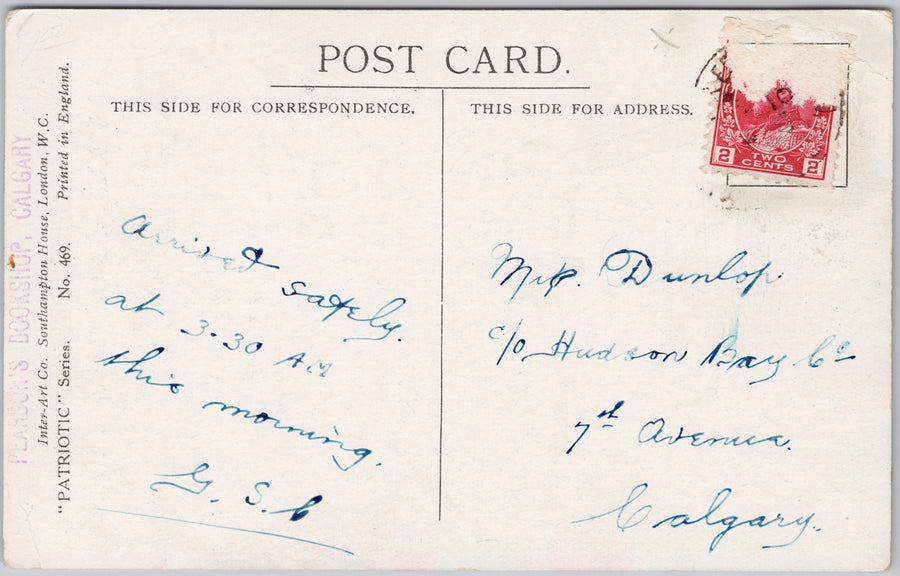 POST CARD.
THIS SIDE FOR CORRESPONDENCE.
THIS SIDE FOR ADDRESS.
2 TWO CENTS 2
Arrived safely.
at 3.30 A.M
this morning.
G. S. C
Dunlop.
c/o Hudson Bay Co
7th Avenue.
Calgary.
PEARSON'S BOOKSHOP, CALGARY
Inter-Art Co. Southampton House, London, W.C.
"PATRIOTIC" Series. No. 469. Printed in England.